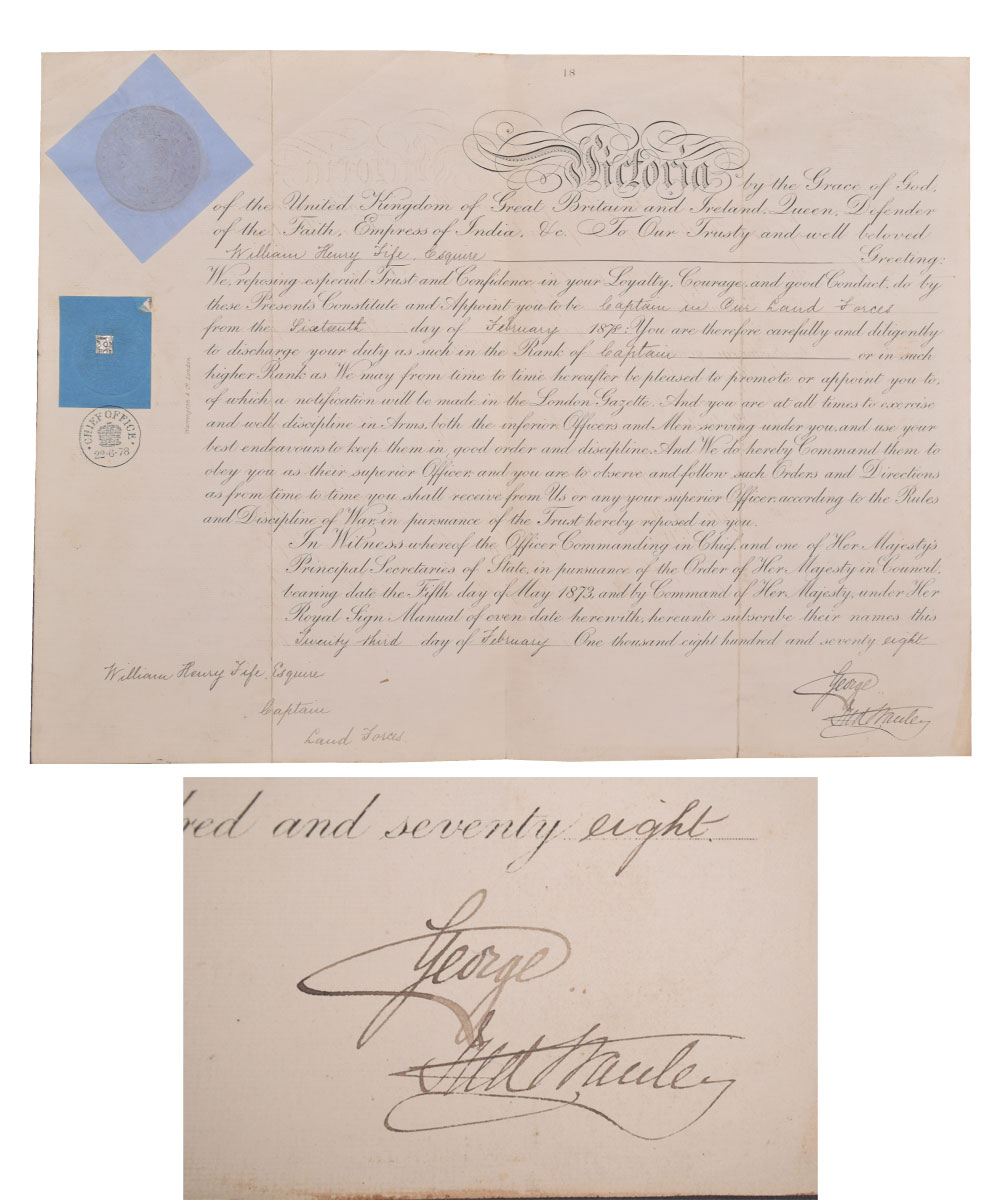 18
Victoria by the Grace of God,
of the United Kingdom of Great Britain and Ireland, Queen, Defender
of the Faith, Empress of India, &c. To Our Trusty and well beloved
William Henry Fife, Esquire Greeting:
We, reposing especial Trust and Confidence in your Loyalty, Courage, and good Conduct, do by
these Presents Constitute and Appoint you to be Captain in Our Land Forces
from the Sixteenth day of February 1878: You are therefore carefully and diligently
to discharge your duty as such in the Rank of Captain or in such
higher Rank as We may from time to time hereafter be pleased to promote or appoint you to,
of which a notification will be made in the London Gazette. And you are at all times to exercise
and well discipline in Arms, both the inferior Officers and Men serving under you, and use your
best endeavours to keep them in good order and discipline. And We do hereby Command them to
obey you as their superior Officer, and you are to observe and follow such Orders and Directions
as from time to time you shall receive from Us or any your superior Officer, according to the Rules
and Discipline of War, in pursuance of the Trust hereby reposed in you.
In Witness whereof the Officer Commanding in Chief, and one of Her Majesty's
Principal Secretaries of State, in pursuance of the Order of Her Majesty in Council,
bearing date the Fifth day of May 1873, and by Command of Her Majesty, under Her
Royal Sign Manual of even date herewith, hereunto subscribe their names this
Twenty third day of February One thousand eight hundred and seventy eight
CHIEF OFFICE
22·6·78
William Henry Fife, Esquire
Captain
Land Forces
George
Fred Stanley
red and seventy eight.
George
Fred Stanley